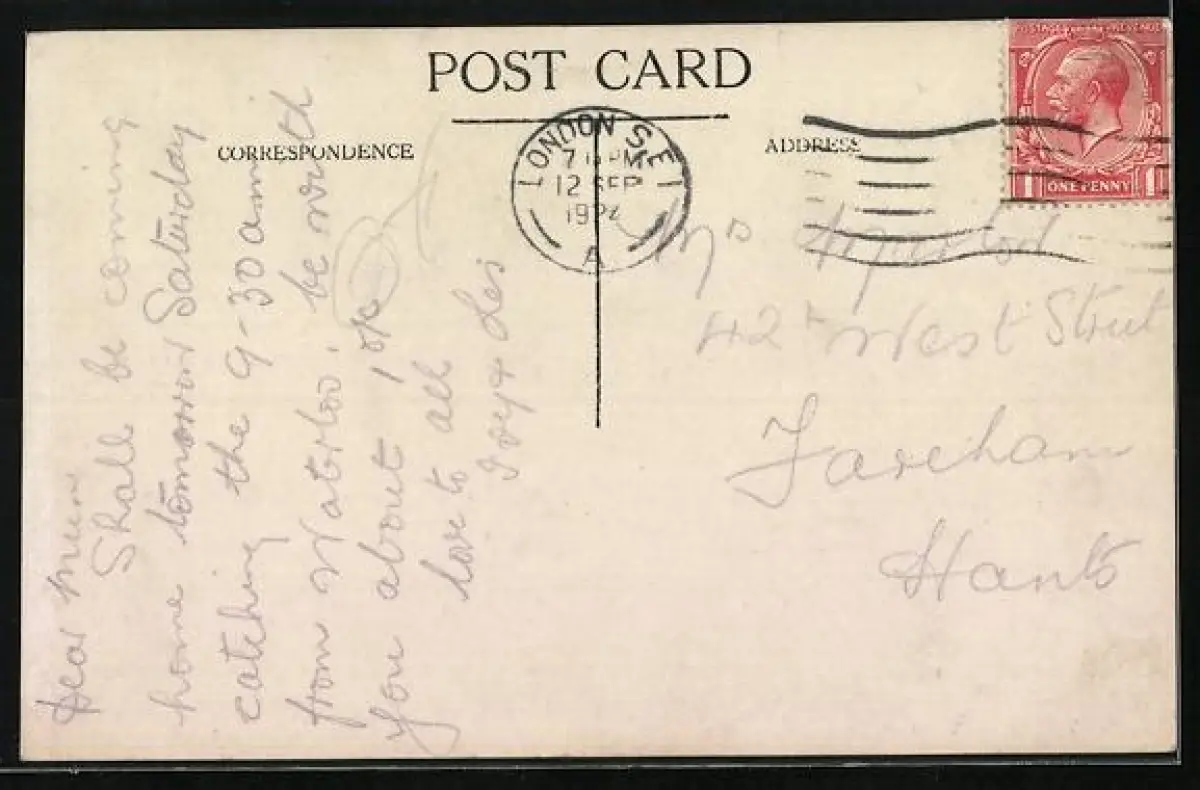 POST CARD
CORRESPONDENCE
ADDRESS
POSTAGE REVENUE
1 ONE PENNY 1
LONDON S.E.1
PM
12 SEP
192
A
Dear Mum
Shall be coming
home tomorrow Saturday
catching the 9-30 am
from Waterloo, be with
you about 1 o/c
love to all
& Les
Mrs
42 West Street
Fareham
Hants